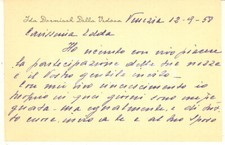 Ida Dermisch Della Vedova Venezia 12-9-50
Carissima Edda
Ho sentito con vivo piacere
la partecipazione delle tue nozze
e il vostro gentile invito.
Con mio vivo rincrescimento io
proprio in quei giorni sono molto
ma egualmente, e di tutto
cuore, invio a te e al tuo Sposo